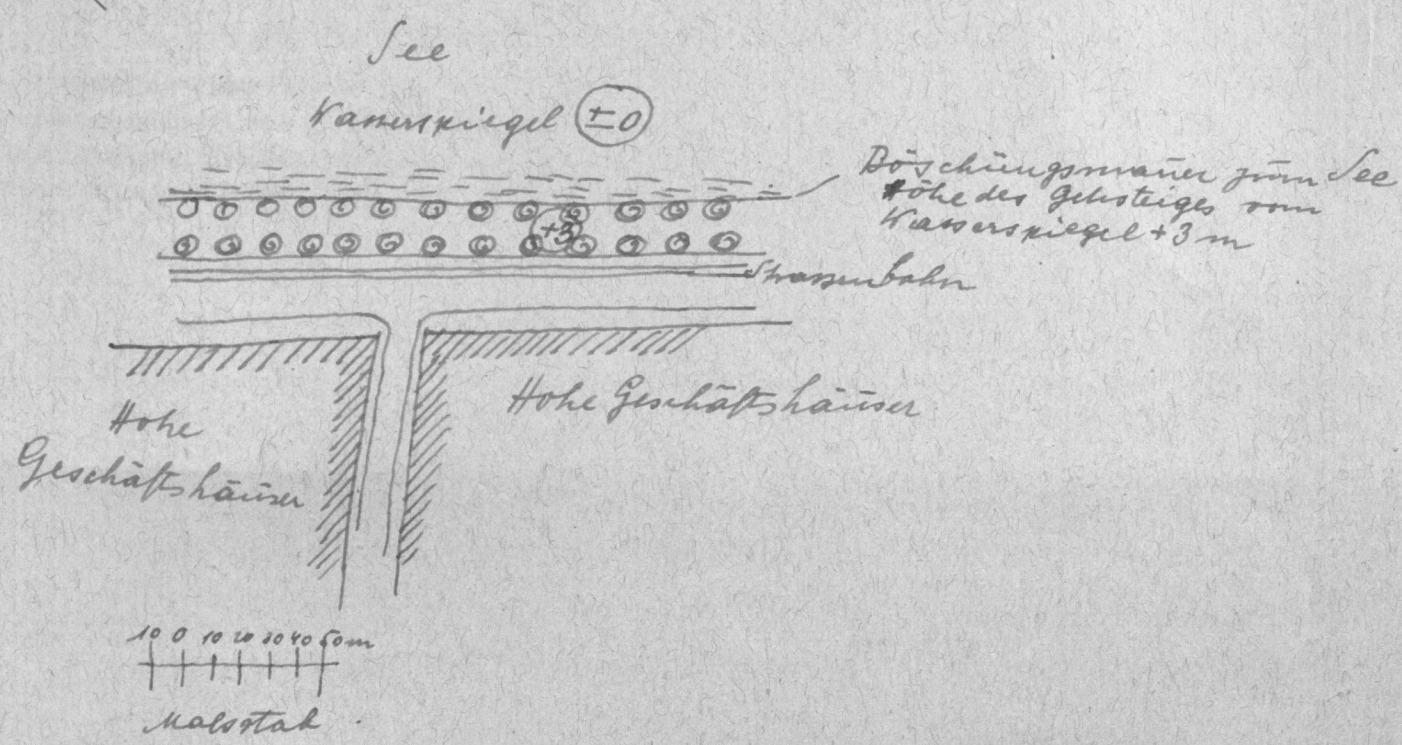 See
Wasserspiegel ±0
Böschungsmauer zum See
Höhe des Gehsteiges vom
Wasserspiegel +3 m
+3
Strassenbahn
Hohe Geschäftshäuser
Hohe
Geschäftshäuser
10 0 10 20 30 40 50 m
Malsstab